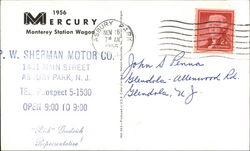 1956
MERCURY
Monterey Station Wagon
P. W. SHERMAN MOTOR CO.
MAIN STREET
ASBURY PARK, N. J.
Tel. Prospect 5-1500
OPEN 9:00 TO 9:00
Representative
ASBURY PARK
NOV 16
John S Penna
Glendola - Allenwood Rd.
Glendola, N J